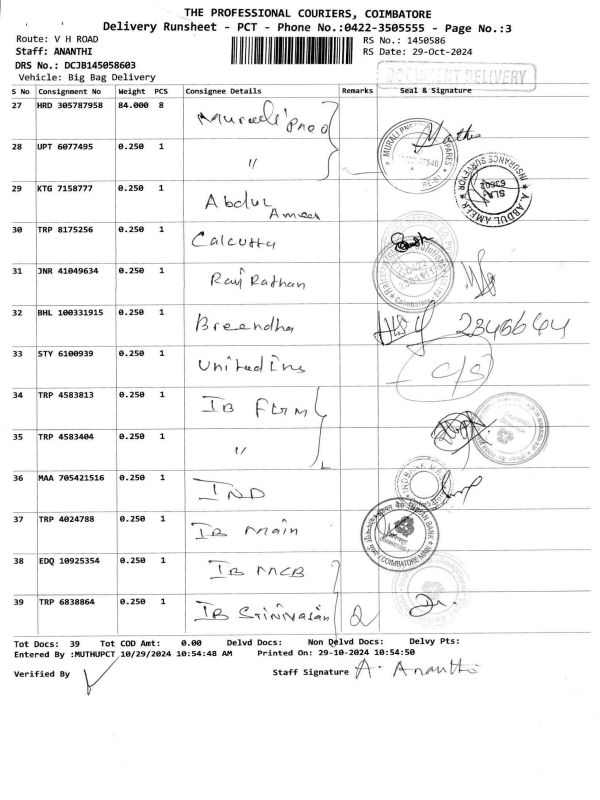 THE PROFESSIONAL COURIERS, COIMBATORE
Delivery Runsheet - PCT - Phone No.:0422-3505555 - Page No.:3
Route: V H ROAD RS No.: 1450586
Staff: ANANTHI RS Date: 29-Oct-2024
DRS No.: DCJB145058603
Vehicle: Big Bag Delivery
DOCUMENT DELIVERY
S No Consignment No Weight PCS Consignee Details Remarks Seal & Signature
27 HRD 305787958 84.000 8
28 UPT 6077495 0.250 1 "
29 KTG 7158777 0.250 1 Abdul Ameer
A. ABDUL AMEER
INSURANCE SURVEYOR
SLA
63602
30 TRP 8175256 0.250 1 Calcutta
31 JNR 41049634 0.250 1 Raj Rathan
32 BHL 100331915 0.250 1 Breendha 2346644
33 STY 6100939 0.250 1 United Ins c/s
34 TRP 4583813 0.250 1 IB
35 TRP 4583404 0.250 1 "
36 MAA 705421516 0.250 1 IND
37 TRP 4024788 0.250 1 IB Main
INDIAN BANK
COIMBATORE MAIN
38 EDQ 10925354 0.250 1 IB MCB
39 TRP 6838864 0.250 1 IB Srinivasan
Tot Docs: 39 Tot COD Amt: 0.00 Delvd Docs: Non Delvd Docs: Delvy Pts:
Entered By :MUTHUPCT 10/29/2024 10:54:48 AM Printed On: 29-10-2024 10:54:50
Verified By Staff Signature A. Ananthi